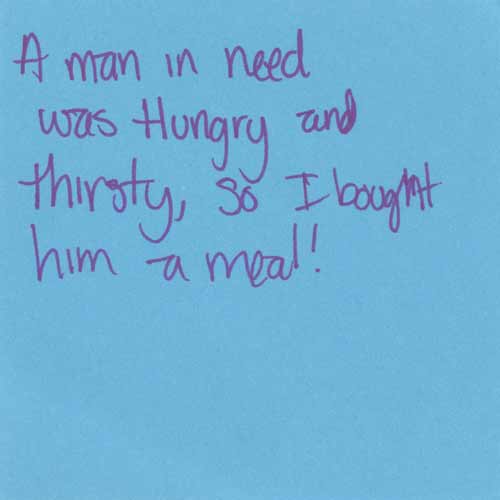 A man in need
was Hungry and
thirsty, so I bought
him a meal!